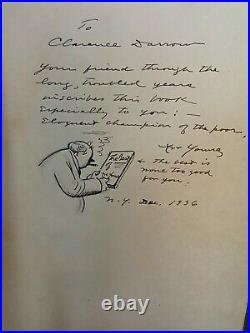 To
Clarence Darrow
Your friend through the
long, troubled years
inscribes this book
Especially to you: -
Eloquent champion of the poor,
Art Young
& the best is
none too good
for you.
The Best
of
N.Y. Dec. 1936